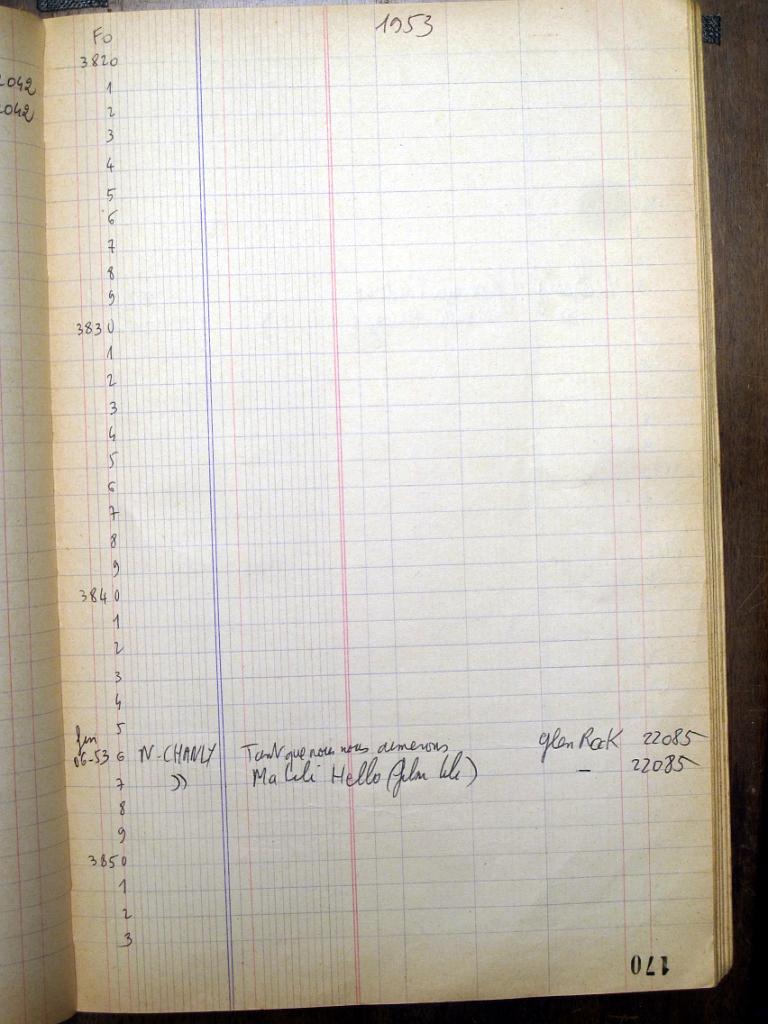 1953
Fo
2042
2042
3820
1
2
3
4
5
6
7
8
9
3830
1
2
3
4
5
6
7
8
9
3840
1
2
3
4
5
06-53 6 N-CHANLY Tant que nous nous aimerons glen Rock 22085
7 )) Ma Lili Hello (film Lili) - 22085
8
9
3850
1
2
3
170